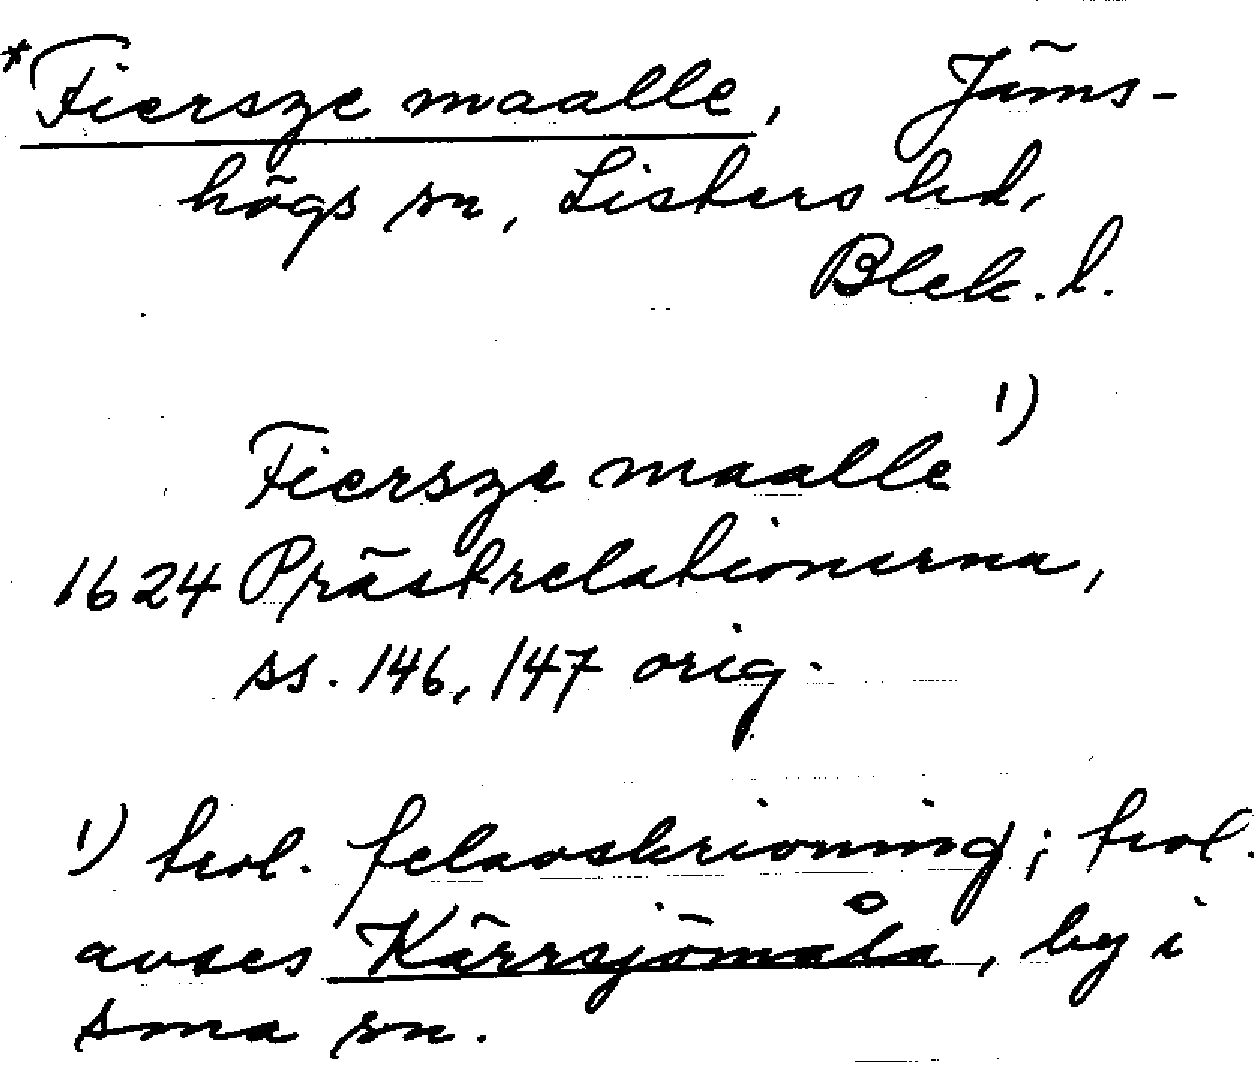 *Fiersze maalle, Jäms-
högs sn, Listers hd,
Blek. l.
Fiersze maalle 1)
1624 Prästrelationerna,
ss. 146, 147 orig.
1) trol. felavskrivning; trol.
avses Kärrsjömåla, by i
sma sn.